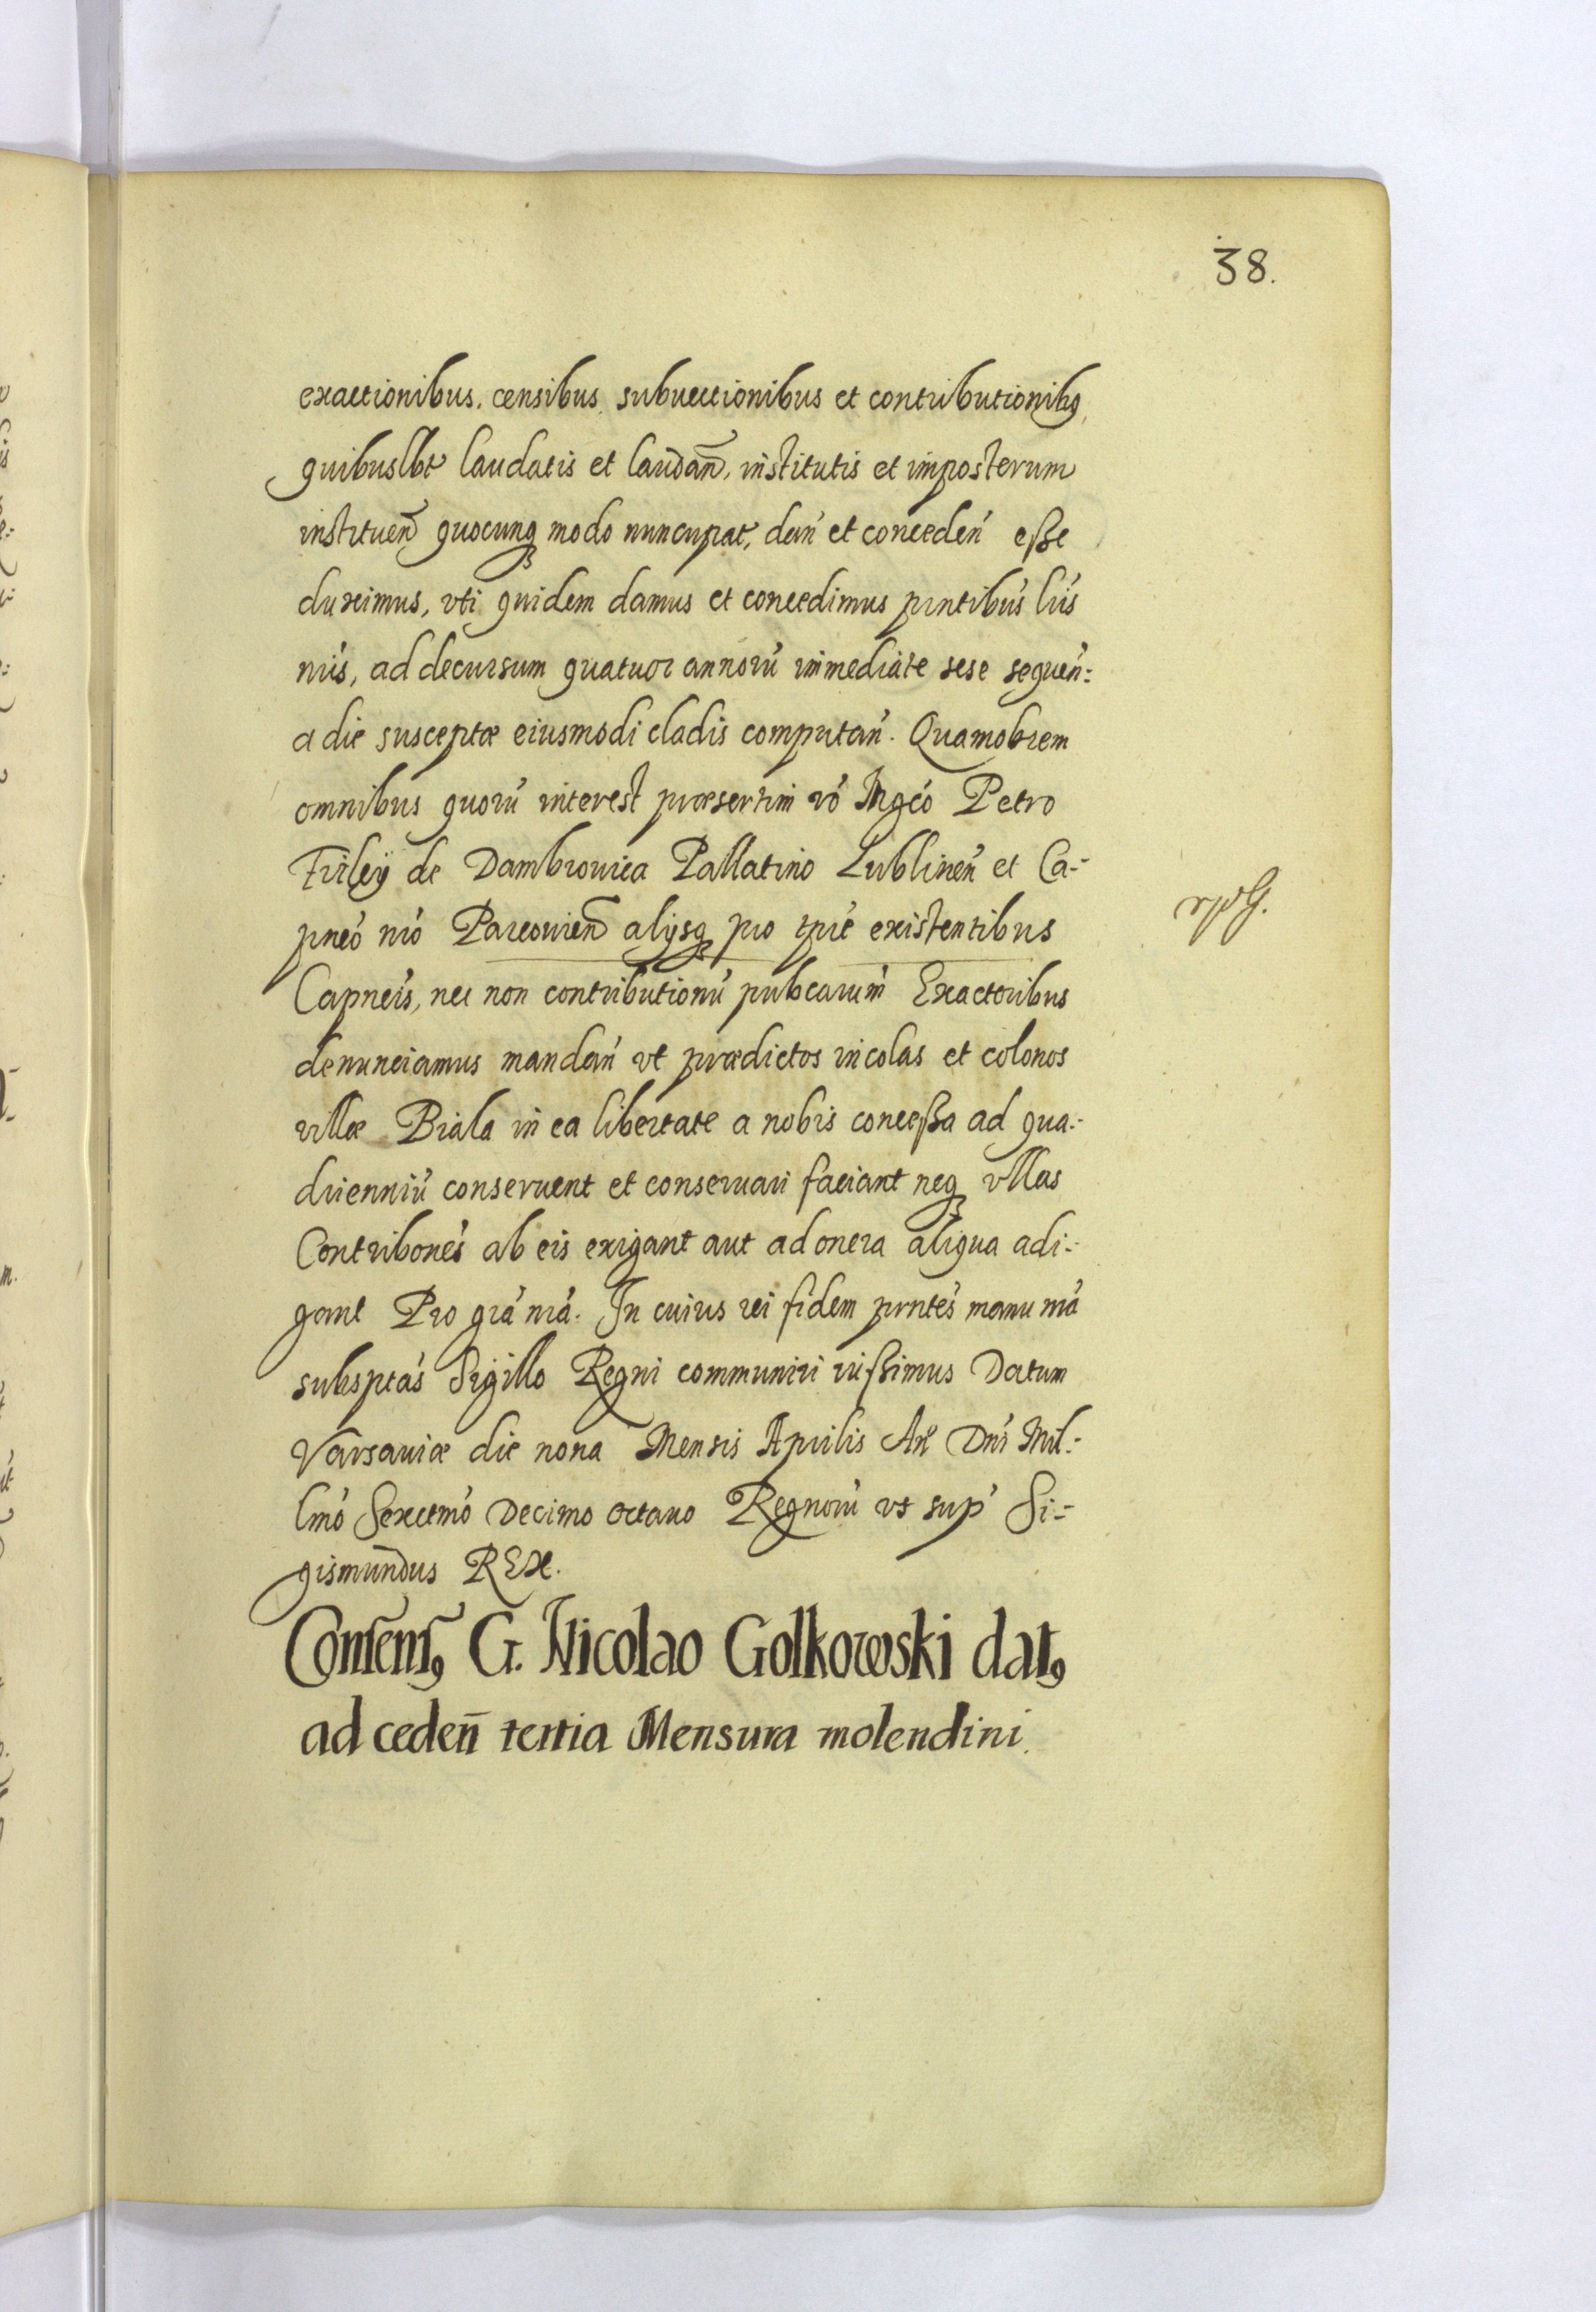 38.
exactionibus, censibus, subvectionibus et contributionibꝰ,
quibuslbt laudatis et laudan̄, institutis et imposterum
instituen̄ quocunqꝫ modo nuncupat, dan̄ et conceden̄ eße
duximus, vti quidem damus et concedimus pntibus lris
nris, ad decursum quatuor annorū immediate sese sequen̄:
a die susceptæ eiusmodi cladis computan̄. Quamobrem
omnibus quorū interest præsertim vō Mgco Petro
Firley de Dambrovica Pallatino Lublinen̄ et Ca-
pneo nro Parcovien̄ alijsqꝫ pro tpre existentibus
Capneis, nec non contributionū pubcarum Exactoribus
denunciamus mandan̄ vt prædictos incolas et colonos
villæ Biala in ea libertate a nobis conceßa ad qua-
drienniū conservent et conservari faciant neqꝫ vllas
Contribones ab eis exigant aut ad onera aliqua adi-
gant Pro gra nra. In cuius rei fidem pntes manu nra
subsptas Sigillo Regni communiri iußimus Datum
Varsaviæ die nona Mensis Aprilis An̄ Dni Mil-
lmo Sexctmo Decimo octavo Regnorū vt sup Si-
gismundus REX.
Consensꝰ G. Nicolao Golkowski datꝰ
ad ceden̄ tertia Mensura molendini.